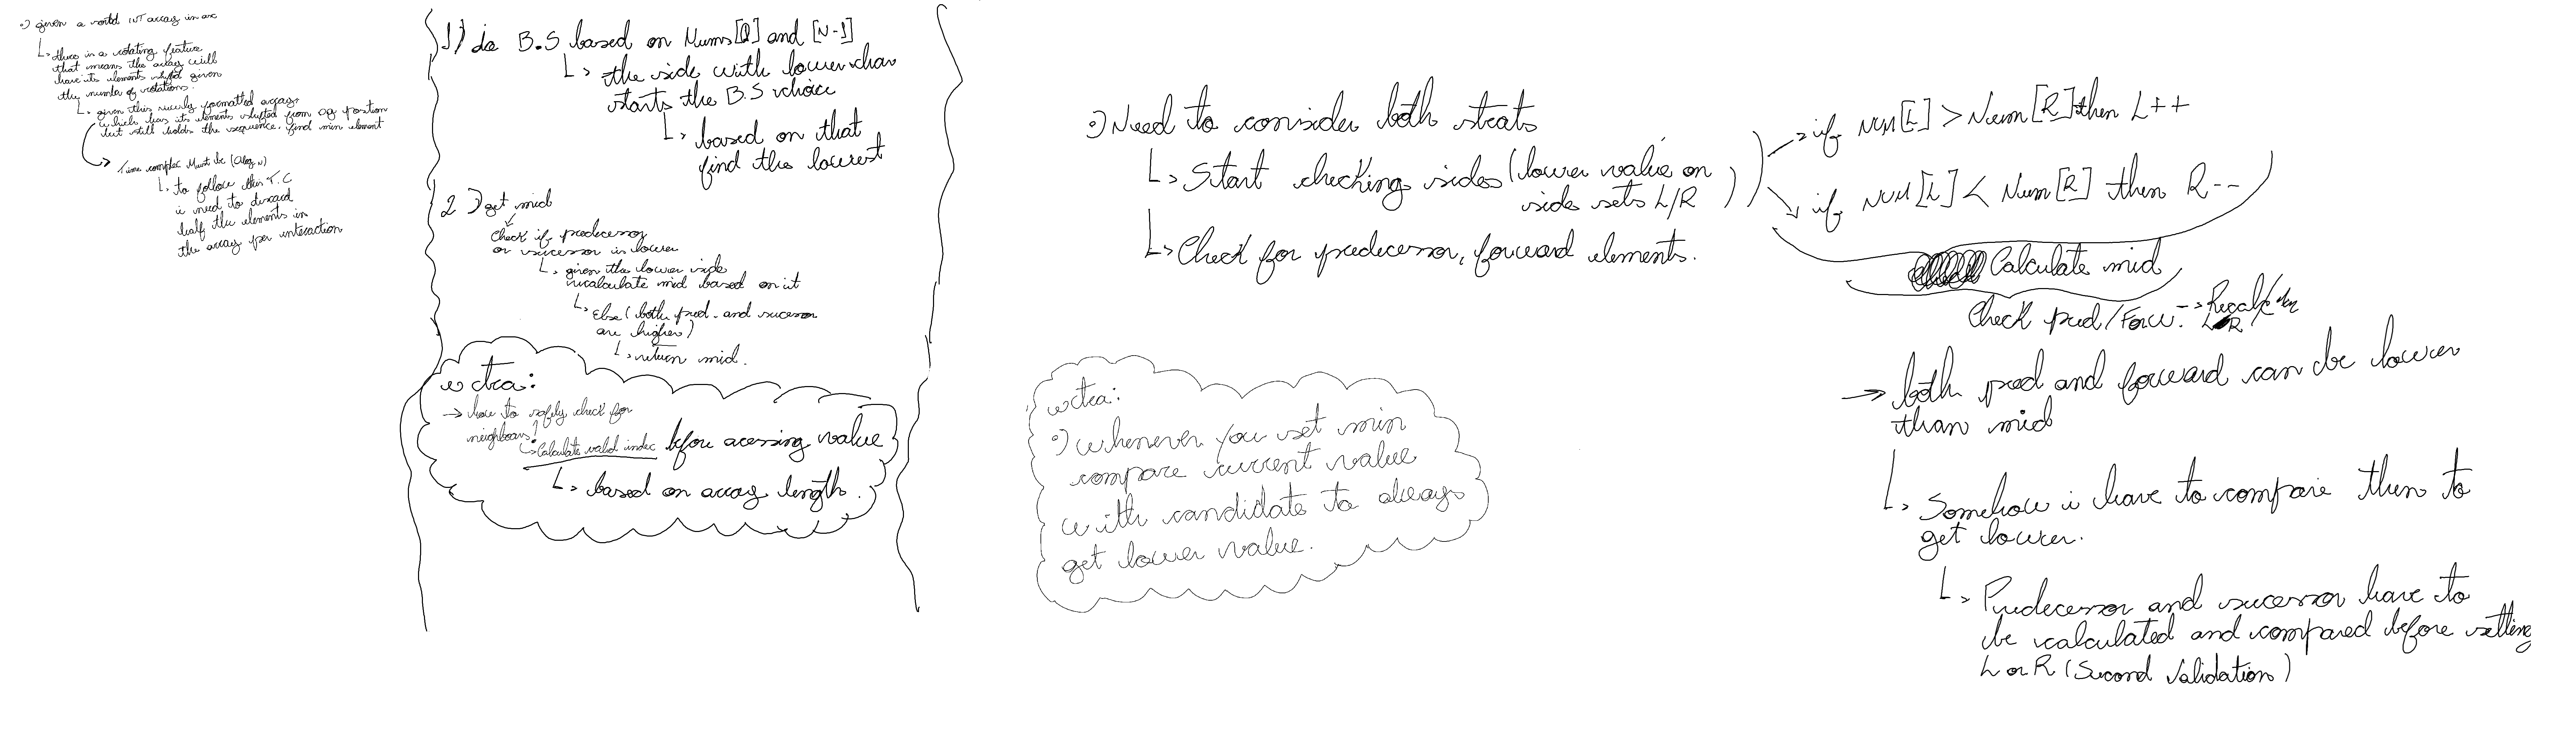 •) given a sorted INT array in asc
↳ there is a rotating feature
that means the array will
have its elements shifted given
the number of rotations.
↳ given this newly formatted array,
which has its elements shifted from og position
but still holds the sequence, find min element
Time complex Must be (O log n)
↳ to follow this T.C
i need to discard
half the elements in
the array per interaction
1) do B.S based on Nums[0] and [N-1]
↳ the side with lower char
starts the B.S choice
↳ based on that
find the lowest
2) get mid
Check if predecessor
or sucessor is lower
↳ given the lower side
recalculate mid based on it
↳ Else (both pred. and sucessor
are higher)
↳ return mid.
extra:
→ how to safely check for
neighbors?
↳ Calculate valid index before acessing value
↳ based on array length.
•) Need to consider both strats
↳ Start checking sides (lower value on
side sets L/R)
↳ Check for predecessor, forward elements.
extra:
•) whenever you set min
compare current value
with candidate to always
get lower value.
→ if NUM[L] > Num[R] then L++
→ if NUM[L] < Num[R] then R--
Calculate mid
Check pred/Forw. → Recalc
L R
→ both pred and forward can be lower
than mid
↳ Somehow i have to compare them to
get lower.
↳ Predecessor and sucessor have to
be calculated and compared before setting
L or R (Second Validation)